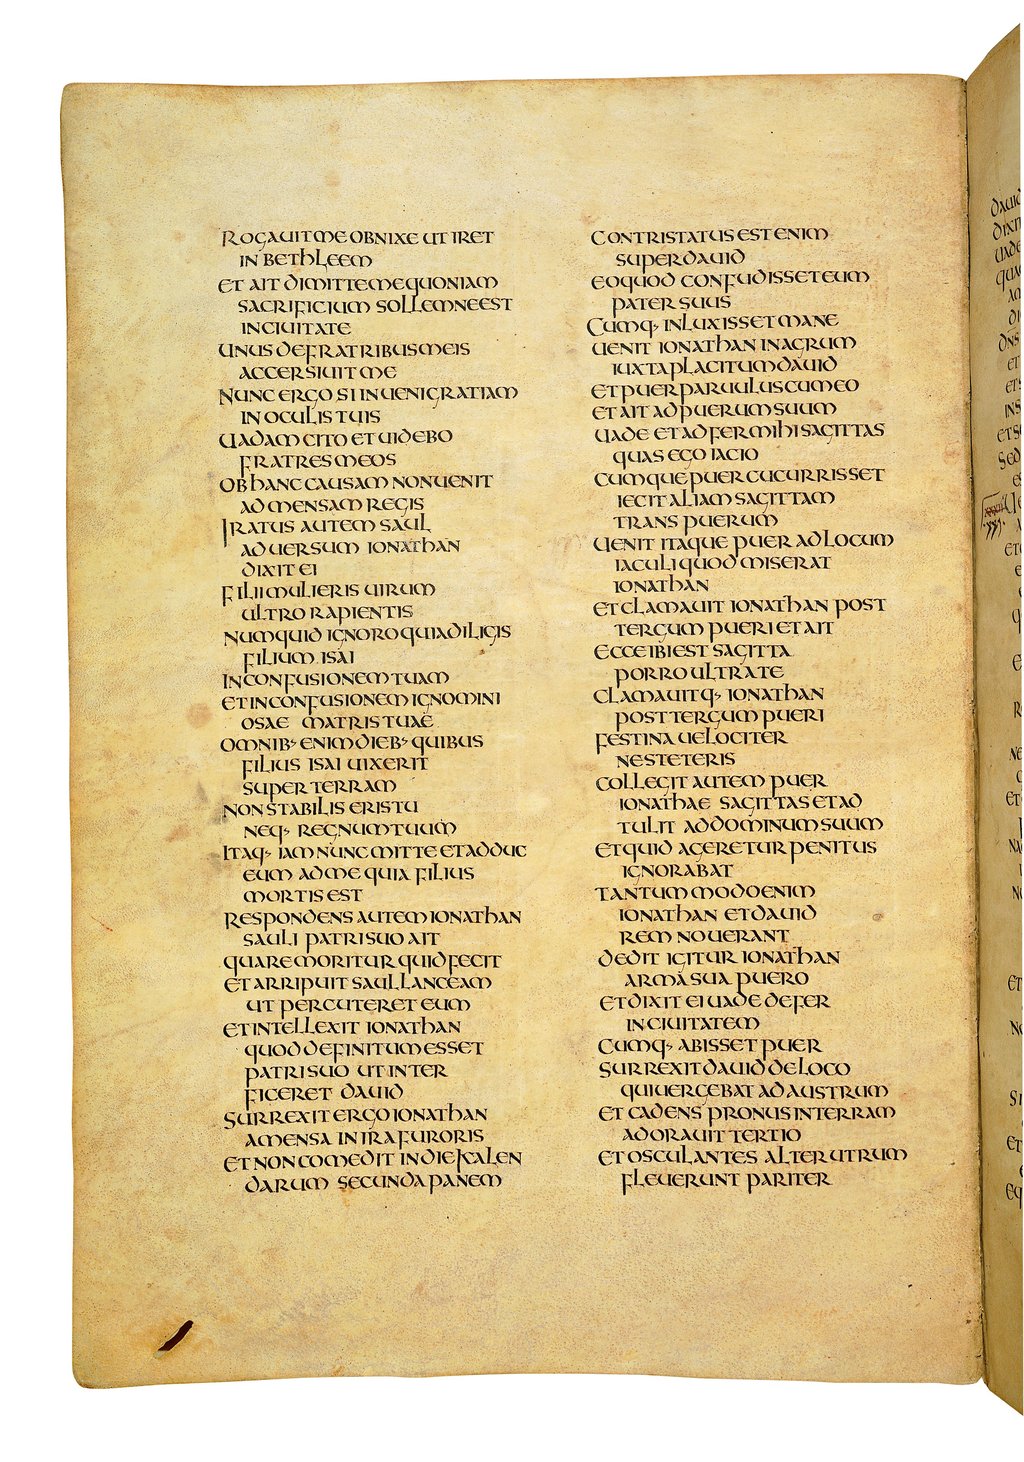 ROGAUIT ME OBNIXE UT IRET
IN BETHLEEM
ET AIT DIMITTE ME QUONIAM
SACRIFICIUM SOLLEMNE EST
IN CIUITATE
UNUS DE FRATRIBUS MEIS
ACCERSIUIT ME
NUNC ERGO SI INUENI GRATIAM
IN OCULIS TUIS
UADAM CITO ET UIDEBO
FRATRES MEOS
OB HANC CAUSAM NON UENIT
AD MENSAM REGIS
IRATUS AUTEM SAUL
ADUERSUM IONATHAN
DIXIT EI
FILII MULIERIS UIRUM
ULTRO RAPIENTIS
NUMQUID IGNORO QUIA DILIGIS
FILIUM ISAI
IN CONFUSIONEM TUAM
ET IN CONFUSIONEM IGNOMINI
OSAE MATRIS TUAE
OMNIB· ENIM DIEB· QUIBUS
FILIUS ISAI UIXERIT
SUPER TERRAM
NON STABILIS ERIS TU
NEQ· REGNUM TUUM
ITAQ· IAM NUNC MITTE ET ADDUC
EUM AD ME QUIA FILIUS
MORTIS EST
RESPONDENS AUTEM IONATHAN
SAULI PATRI SUO AIT
QUARE MORITUR QUID FECIT
ET ARRIPUIT SAUL LANCEAM
UT PERCUTERET EUM
ET INTELLEXIT IONATHAN
QUOD DEFINITUM ESSET
PATRI SUO UT INTER
FICERET DAUID
SURREXIT ERGO IONATHAN
A MENSA IN IRA FURORIS
ET NON COMEDIT IN DIE KALEN
DARUM SECUNDA PANEM
CONTRISTATUS EST ENIM
SUPER DAUID
EO QUOD CONFUDISSET EUM
PATER SUUS
CUMQ· INLUXISSET MANE
UENIT IONATHAN IN AGRUM
IUXTA PLACITUM DAUID
ET PUER PARUULUS CUM EO
ET AIT AD PUERUM SUUM
UADE ET ADFER MIHI SAGITTAS
QUAS EGO IACIO
CUMQUE PUER CUCURRISSET
IECIT ALIAM SAGITTAM
TRANS PUERUM
UENIT ITAQUE PUER AD LOCUM
IACULI QUOD MISERAT
IONATHAN
ET CLAMAUIT IONATHAN POST
TERGUM PUERI ET AIT
ECCE IBI EST SAGITTA
PORRO ULTRA TE
CLAMAUITQ· IONATHAN
POST TERGUM PUERI
FESTINA UELOCITER
NE STETERIS
COLLEGIT AUTEM PUER
IONATHAE SAGITTAS ET AD
TULIT AD DOMINUM SUUM
ET QUID AGERETUR PENITUS
IGNORABAT
TANTUMMODO ENIM
IONATHAN ET DAUID
REM NOUERANT
DEDIT IGITUR IONATHAN
ARMA SUA PUERO
ET DIXIT EI UADE DEFER
IN CIUITATEM
CUMQ· ABISSET PUER
SURREXIT DAUID DE LOCO
QUI UERGEBAT AD AUSTRUM
ET CADENS PRONUS IN TERRAM
ADORAUIT TERTIO
ET OSCULANTES ALTERUTRUM
FLEUERUNT PARITER